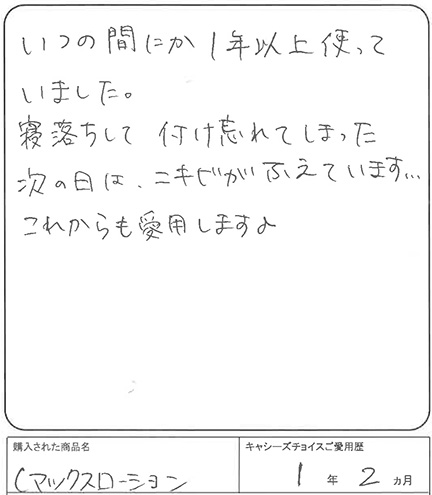 いつの間にか1年以上使って
いました。
寝落ちして 付け忘れてしまった
次の日は、ニキビがふえています…
これからも愛用します♪
購入された商品名
キャシーズチョイスご愛用歴
Cマックスローション
1年2ヵ月